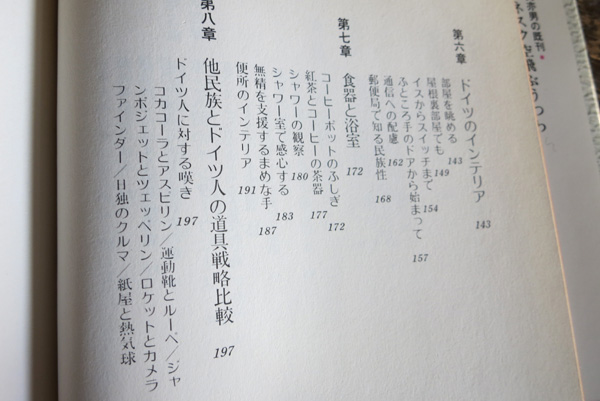 赤男の既刊
ネスク空飛ぶうつつ
第六章 ドイツのインテリア 143
部屋を眺める 143
屋根裏部屋でも 149
イスからスイッチまで 154
ふところ手のドアから始まって 157
通信への配慮 162
郵便局で知る民族性 168
第七章 食器と浴室 172
コーヒーポットのふしぎ 172
紅茶とコーヒーの茶器 177
シャワーの観察 180
シャワー室で感心する 183
無精を支援するまめな手 187
便所のインテリア 191
第八章 他民族とドイツ人の道具戦略比較 197
ドイツ人に対する嘆き 197
コカコーラとアスピリン/運動靴とルーペ/ジャ
ンボジェットとツェッペリン/ロケットとカメラ
ファインダー/日独のクルマ/紙屋と熱気球